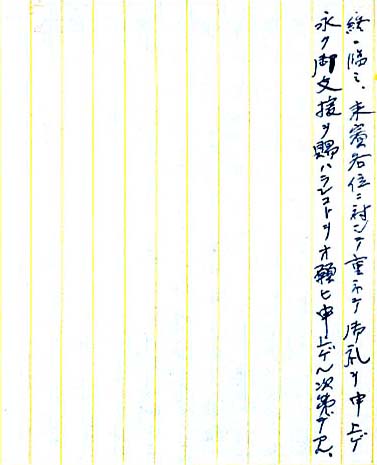 終ニ臨ミ、来賓各位ニ対シテ重ネテ御礼ヲ申上ゲ
永ク御支援ヲ賜ハランコトヲオ願ヒ申上ゲル次第デアル、